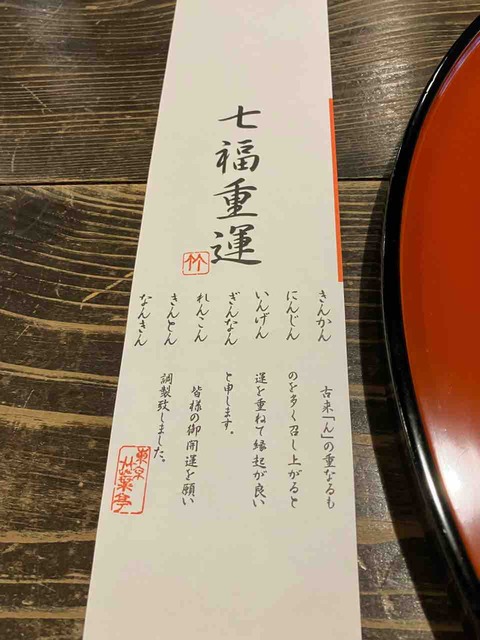 七福重運
竹
きんかん
にんじん
いんげん
ぎんなん
れんこん
きんとん
なんきん
古来「ん」の重なるも
のを多く召し上がると
運を重ねて縁起が良い
と申します。
皆様の御開運を願い
調製致しました。
竹葉亭